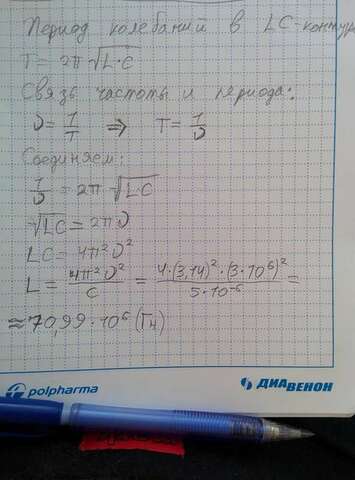 Период колебаний в LC-контур
T = 2π√L·C
Связь частоты и периода:
ν = 1/T ⇒ T = 1/ν
Соединяем:
1/ν = 2π √L·C
√LC = 2πν
LC = 4π²ν²
L = 4π²ν²/C = 4·(3,14)²·(3·10⁶)²/5·10⁻⁶ =
≈ 70,99·10⁶ (Гн)
polpharma ДИАВЕНОН